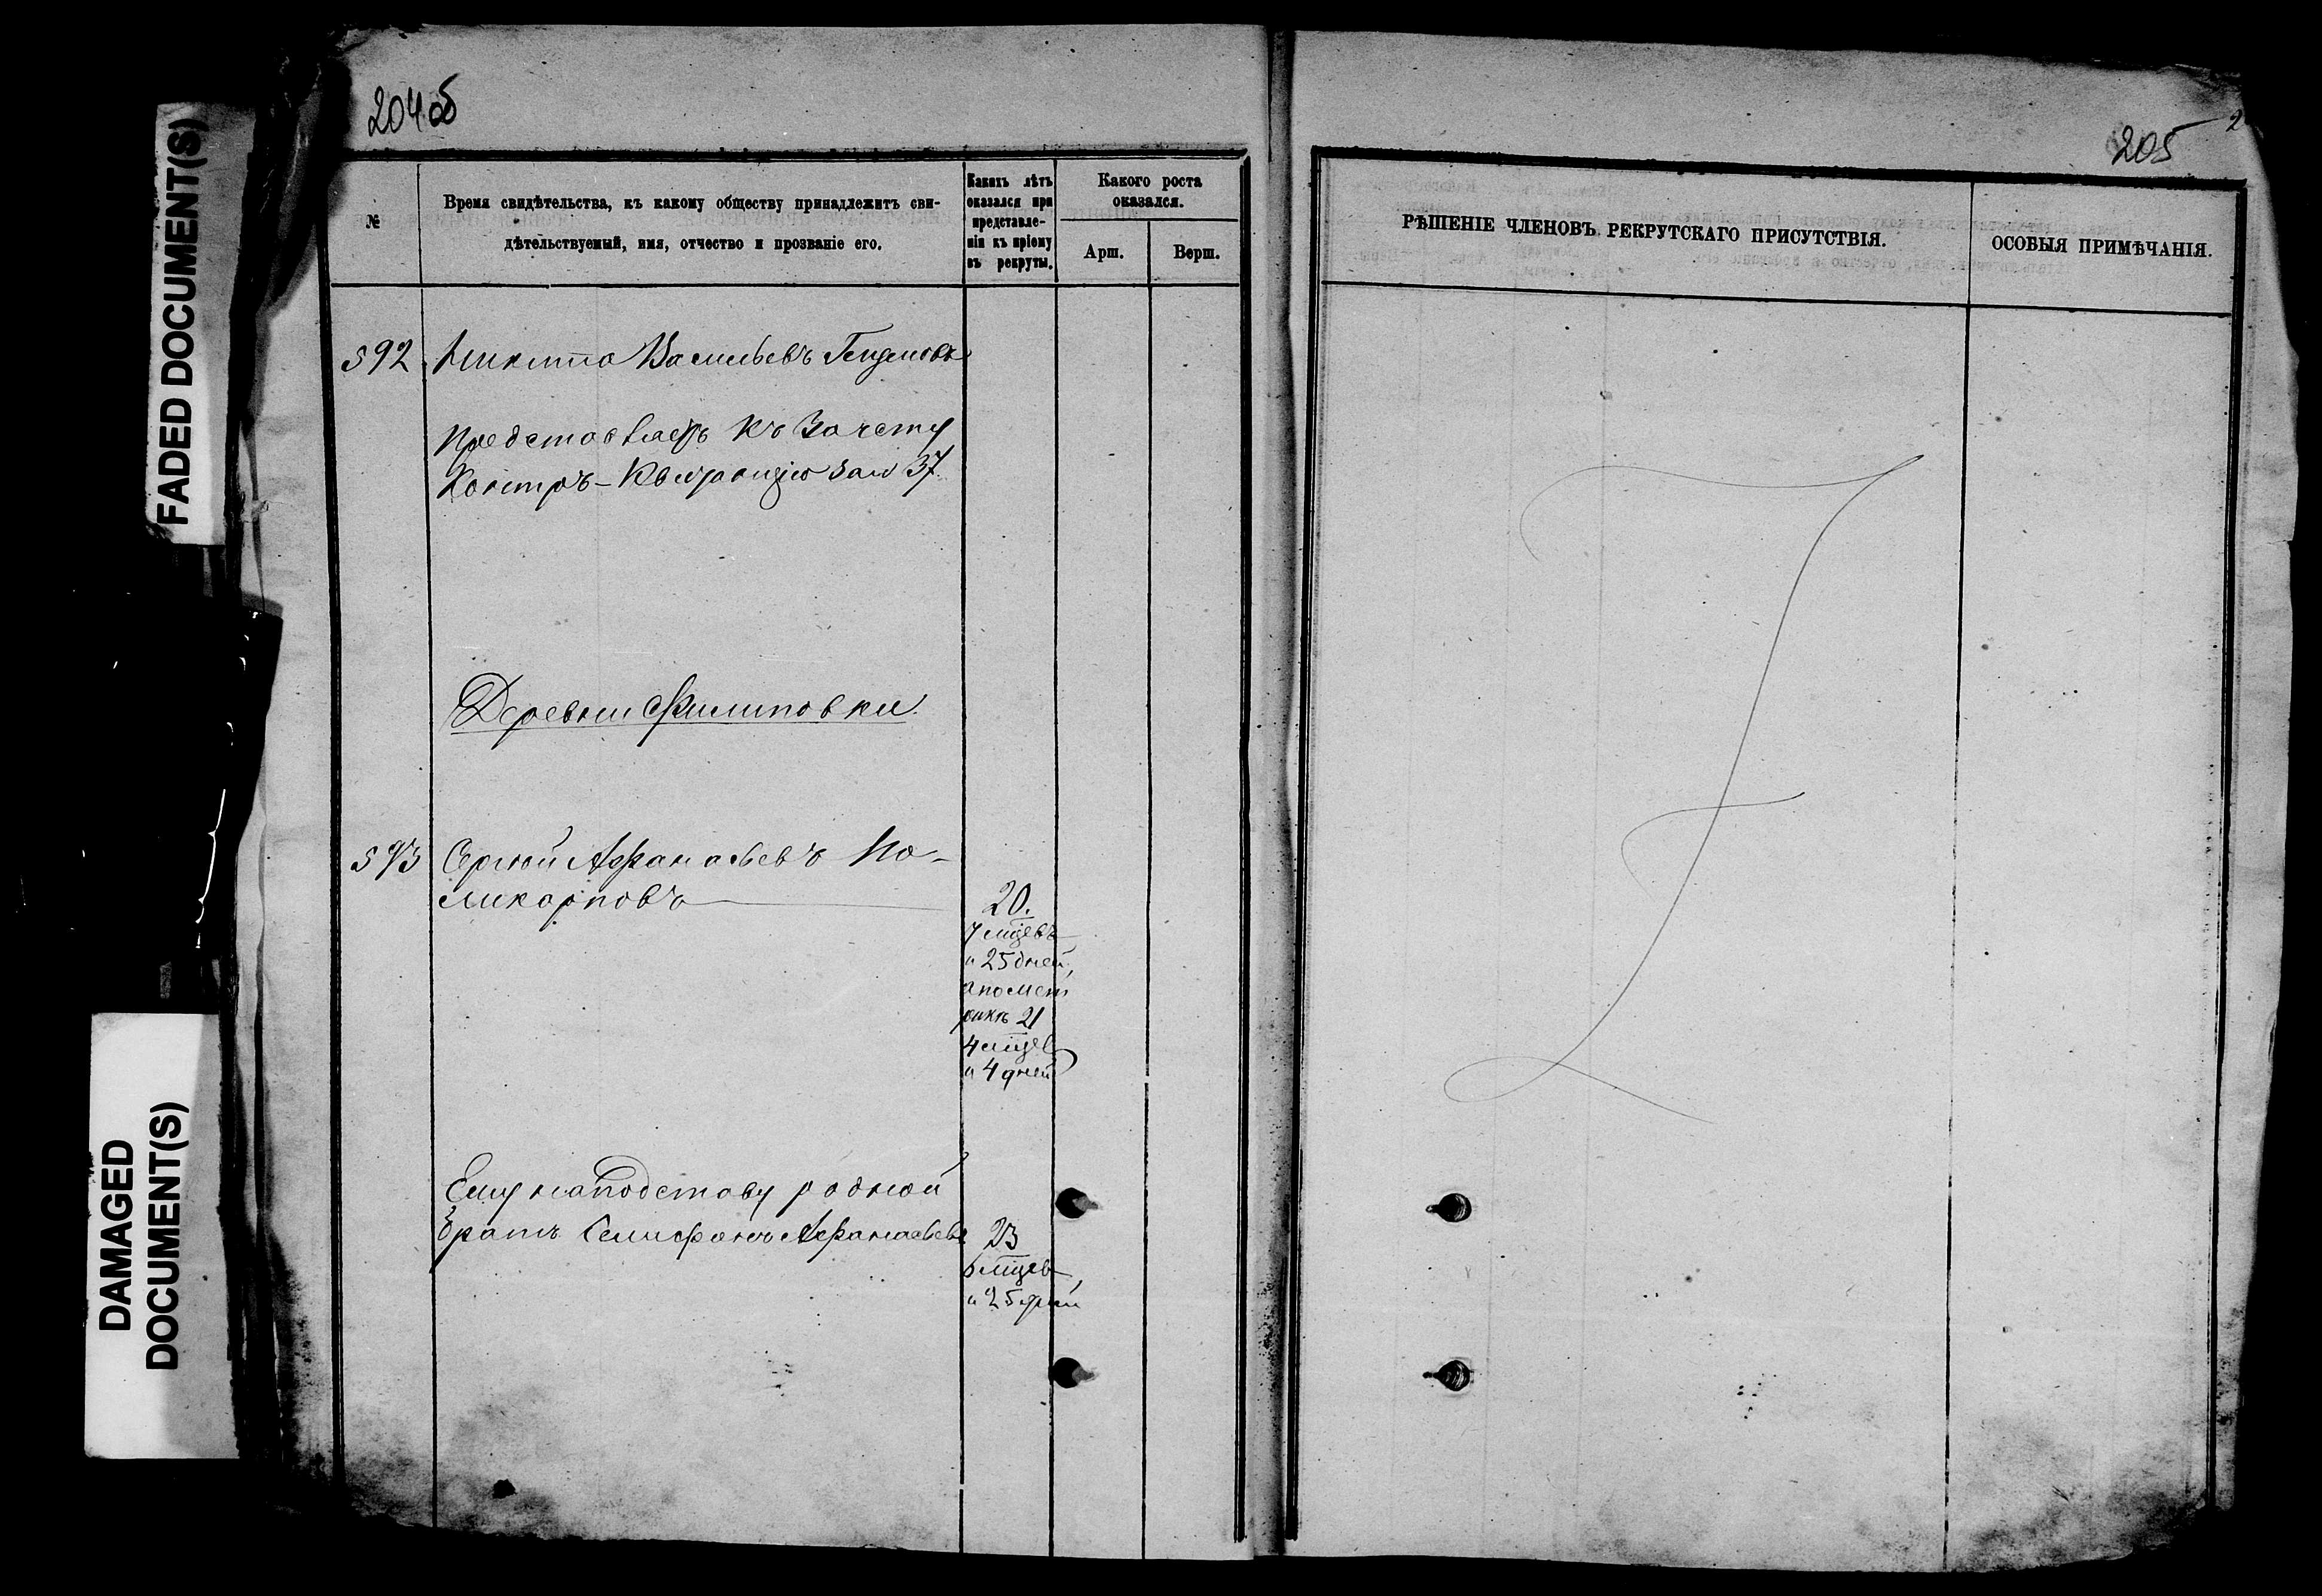 FADED DOCUMENT(S)
DAMAGED
DOCUMENT(S)
204 об
№
Время свидѣтельства, къ какому обществу принадлежитъ сви-
дѣтельствуемый, имя, отчество и прозваніе его.
Какихъ лѣтъ
оказался при
представле-
ніи къ пріему
въ рекруты.
Какого роста
оказался.
Арш.
Верш.
592
Никита Васильевъ
Представляетъ къ Зачету
Контръ-Квитанцію за № 37
Деревни Филиповки.
593
Сергѣй Афанасьевъ По-
ликарповъ
20.
7 мцевъ
и 25 дней,
а по мет
рикѣ 21
4 мцев
и 4 дней
Ему на подставу родной
братъ Селифанъ Афанасьевъ
23
6 мцев,
и 25 дней
2
205
РѢШЕНІЕ ЧЛЕНОВЪ РЕКРУТСКАГО ПРИСУТСТВІЯ.
ОСОБЫЯ ПРИМѢЧАНІЯ.